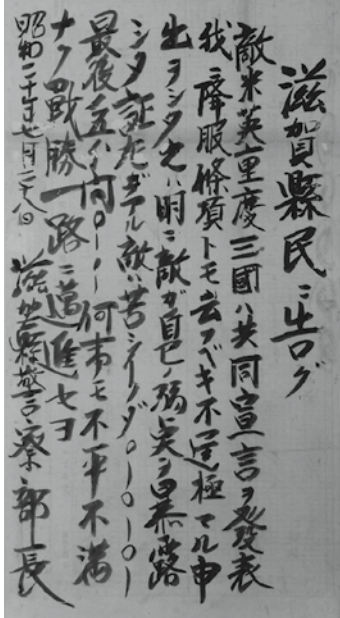 滋賀縣民ニ告グ
敵米英重慶三國ハ共同宣言ヲ發表
我ニ降服條項トモ云フベキ不逞極マル申
出ヲシタ之ハ明ニ敵ガ自己ノ弱点ヲ暴露
シタ証左デアル敵ハ苦シイノダ○ー○ー○ー
最後ノ五分間○ーー何事モ不平不満
ナク戰勝一路ニ邁進セヨ
昭和二十年七月二十八日 滋賀縣警察部長